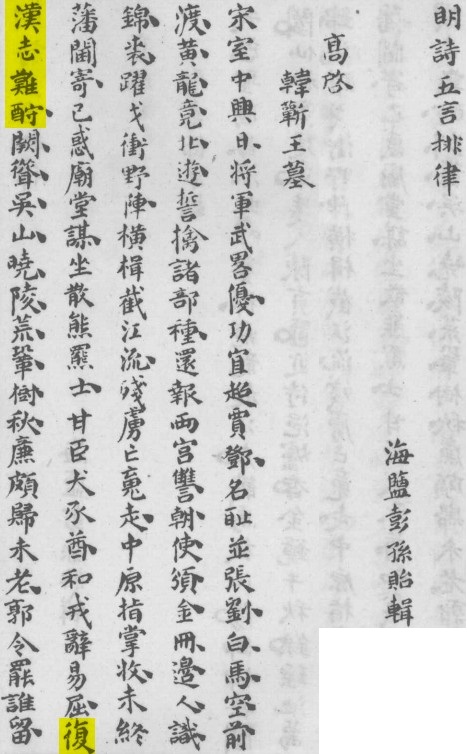 明詩五言排律
海鹽彭孫貽輯
髙啓
韓蘄王墓
宋室中興日将軍武畧優功宜超賈鄧名耻並張劉白馬空前
渡黄龍竟北遊誓擒諸部種還報两宫讐朝使須金冊邊人識
錦裘躍戈衝野陣橫楫截江流殘虜亡䰟走中原指掌收未終
藩閫寄已惑廟堂謀坐散熊羆士甘臣犬豕酋和戎辭易屈復
漢志難酧闕聳吴山曉陵荒鞏樹秋廉頗歸未老郭令罷誰留